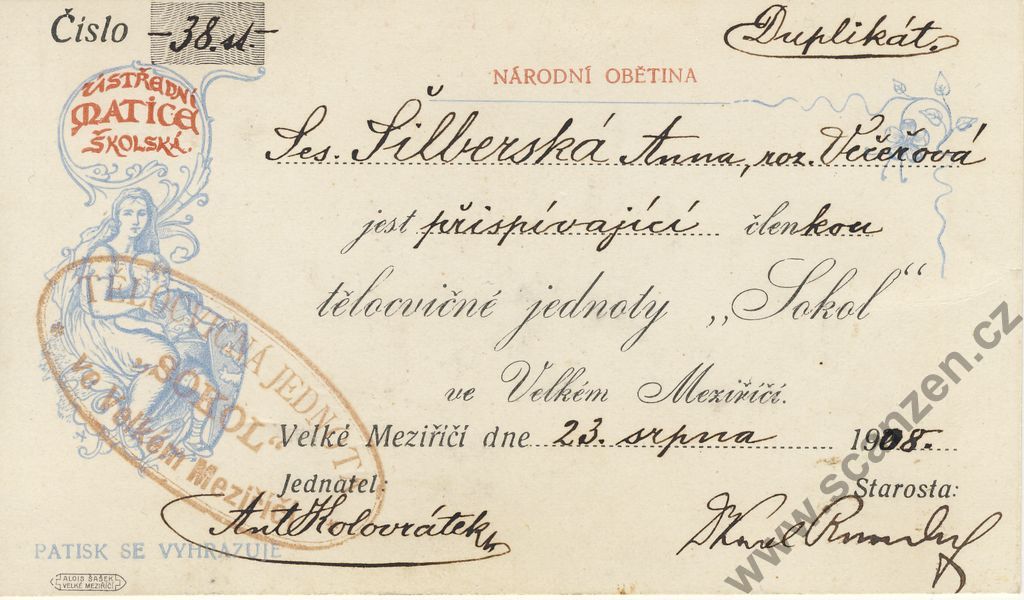 Číslo -38.st.-
Duplikát.
ÚSTŘEDNÍ
MATICE
ŠKOLSKÁ.
NÁRODNÍ OBĚTINA
Ses. Šilberská Anna, roz. Večeřová
jest přispívající členkou
tělocvičné jednoty „Sokol“
ve Velkém Meziříčí.
TĚLOCVIČNÁ JEDNOTA
„SOKOL“
ve Velkém Meziříčí
Velké Meziříčí dne 23. srpna 1908.
Jednatel: Starosta:
Ant Kolovrátek
Karel
PATISK SE VYHRAZUJE
ALOIS ŠAŠEK
VELKÉ MEZIŘÍČÍ
www.scanzen.cz